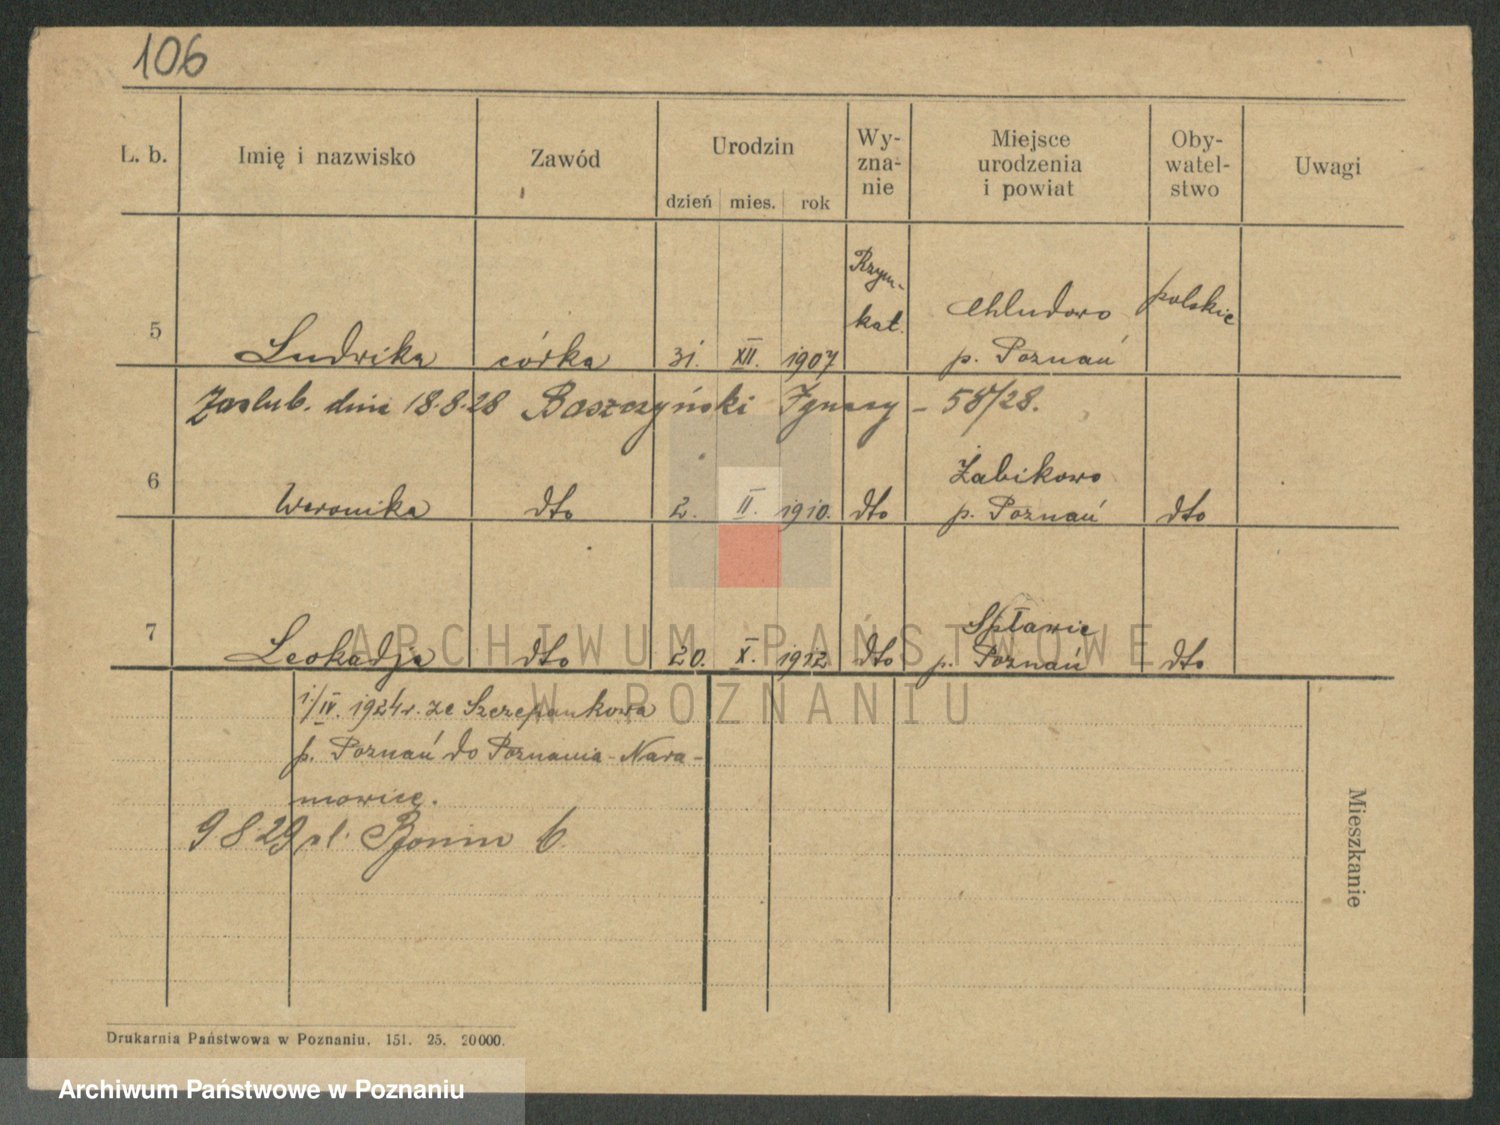 106
L. b. Imię i nazwisko Zawód Urodzin dzień mies. rok Wy-zna-nie Miejsce urodzenia i powiat Oby-watel-stwo Uwagi
Rzym-
5 Ludwika córka 31. XII. 1907 kat. Chludowo polskie
p. Poznań
Zaslub. dnia 18.8.28 Baszczyński Ignacy - 58/28.
Żabikowo
6 Weronika dto 2. II. 1910. dto p. Poznań dto
Spławie
7 Leokadja dto 20. X. 1912 dto p. Poznań dto
ARCHIWUM PAŃSTWOWE
W POZNANIU
1/IV. 1924 r. ze Szczepankowa
p. Poznań do Poznania-Nara-
mowice.
9 8 29 Bonin 6
Mieszkanie
Drukarnia Państwowa w Poznaniu. 151. 25. 20000.
Archiwum Państwowe w Poznaniu